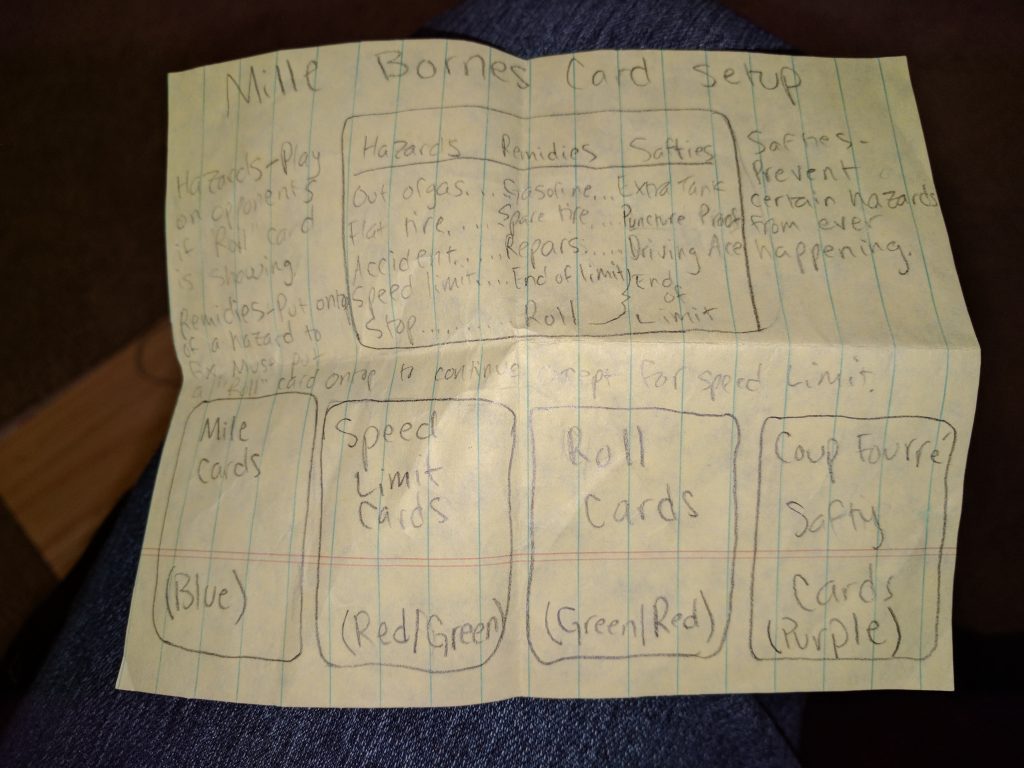 Mille Bornes Card Setup
Hazards-Play
on opponents
if "Roll" card
is showing
Remidies-Put onto
of a hazard to
fix. Must put
a "Roll" card ontop to continue except for speed Limit.
Hazards Remidies Safties
Out of gas... Gasoline... Extra Tank
Flat tire..... Spare tire... Puncture Proof
Accident..... Repars..... Driving Ace
Speed limit... End of limit } End
of
Stop.......... Roll Limit
Safties-
Prevent
certain hazards
from ever
happening.
Mile
Cards
(Blue)
Speed
Limit
Cards
(Red/Green)
Roll
Cards
(Green/Red)
Coup Fourré
Safty
Cards
(Purple)